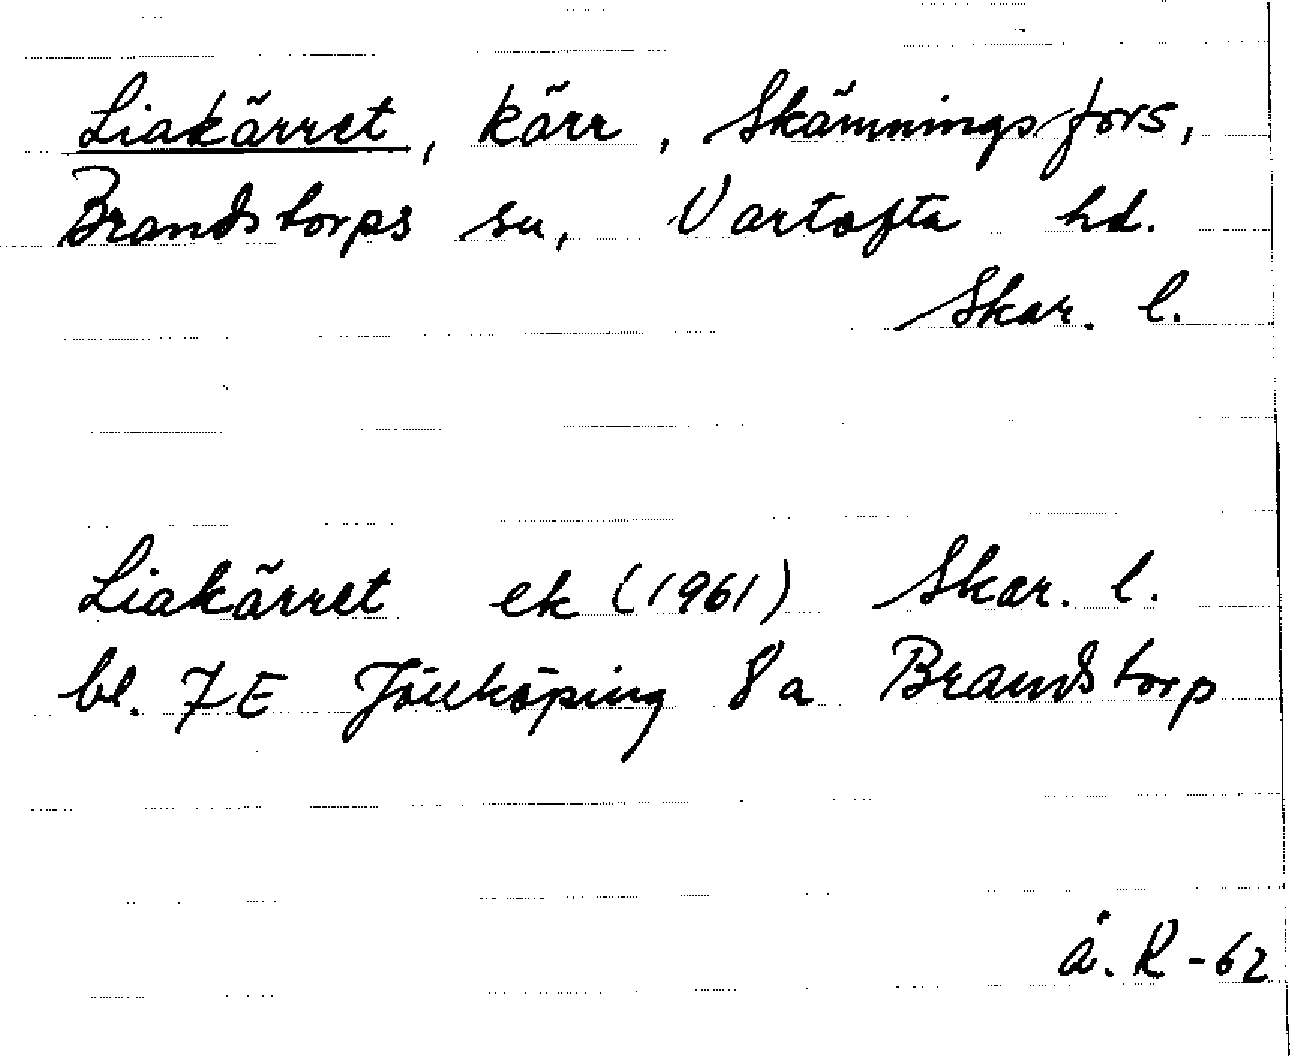 Liakärret, kärr, Skämningsfors,
Brandstorps sn, Vartofta hd.
Skar. l.
Liakärret ek (1961) Skar. l.
bl. 7E Jönköping 8a Brandstorp
å. R -62